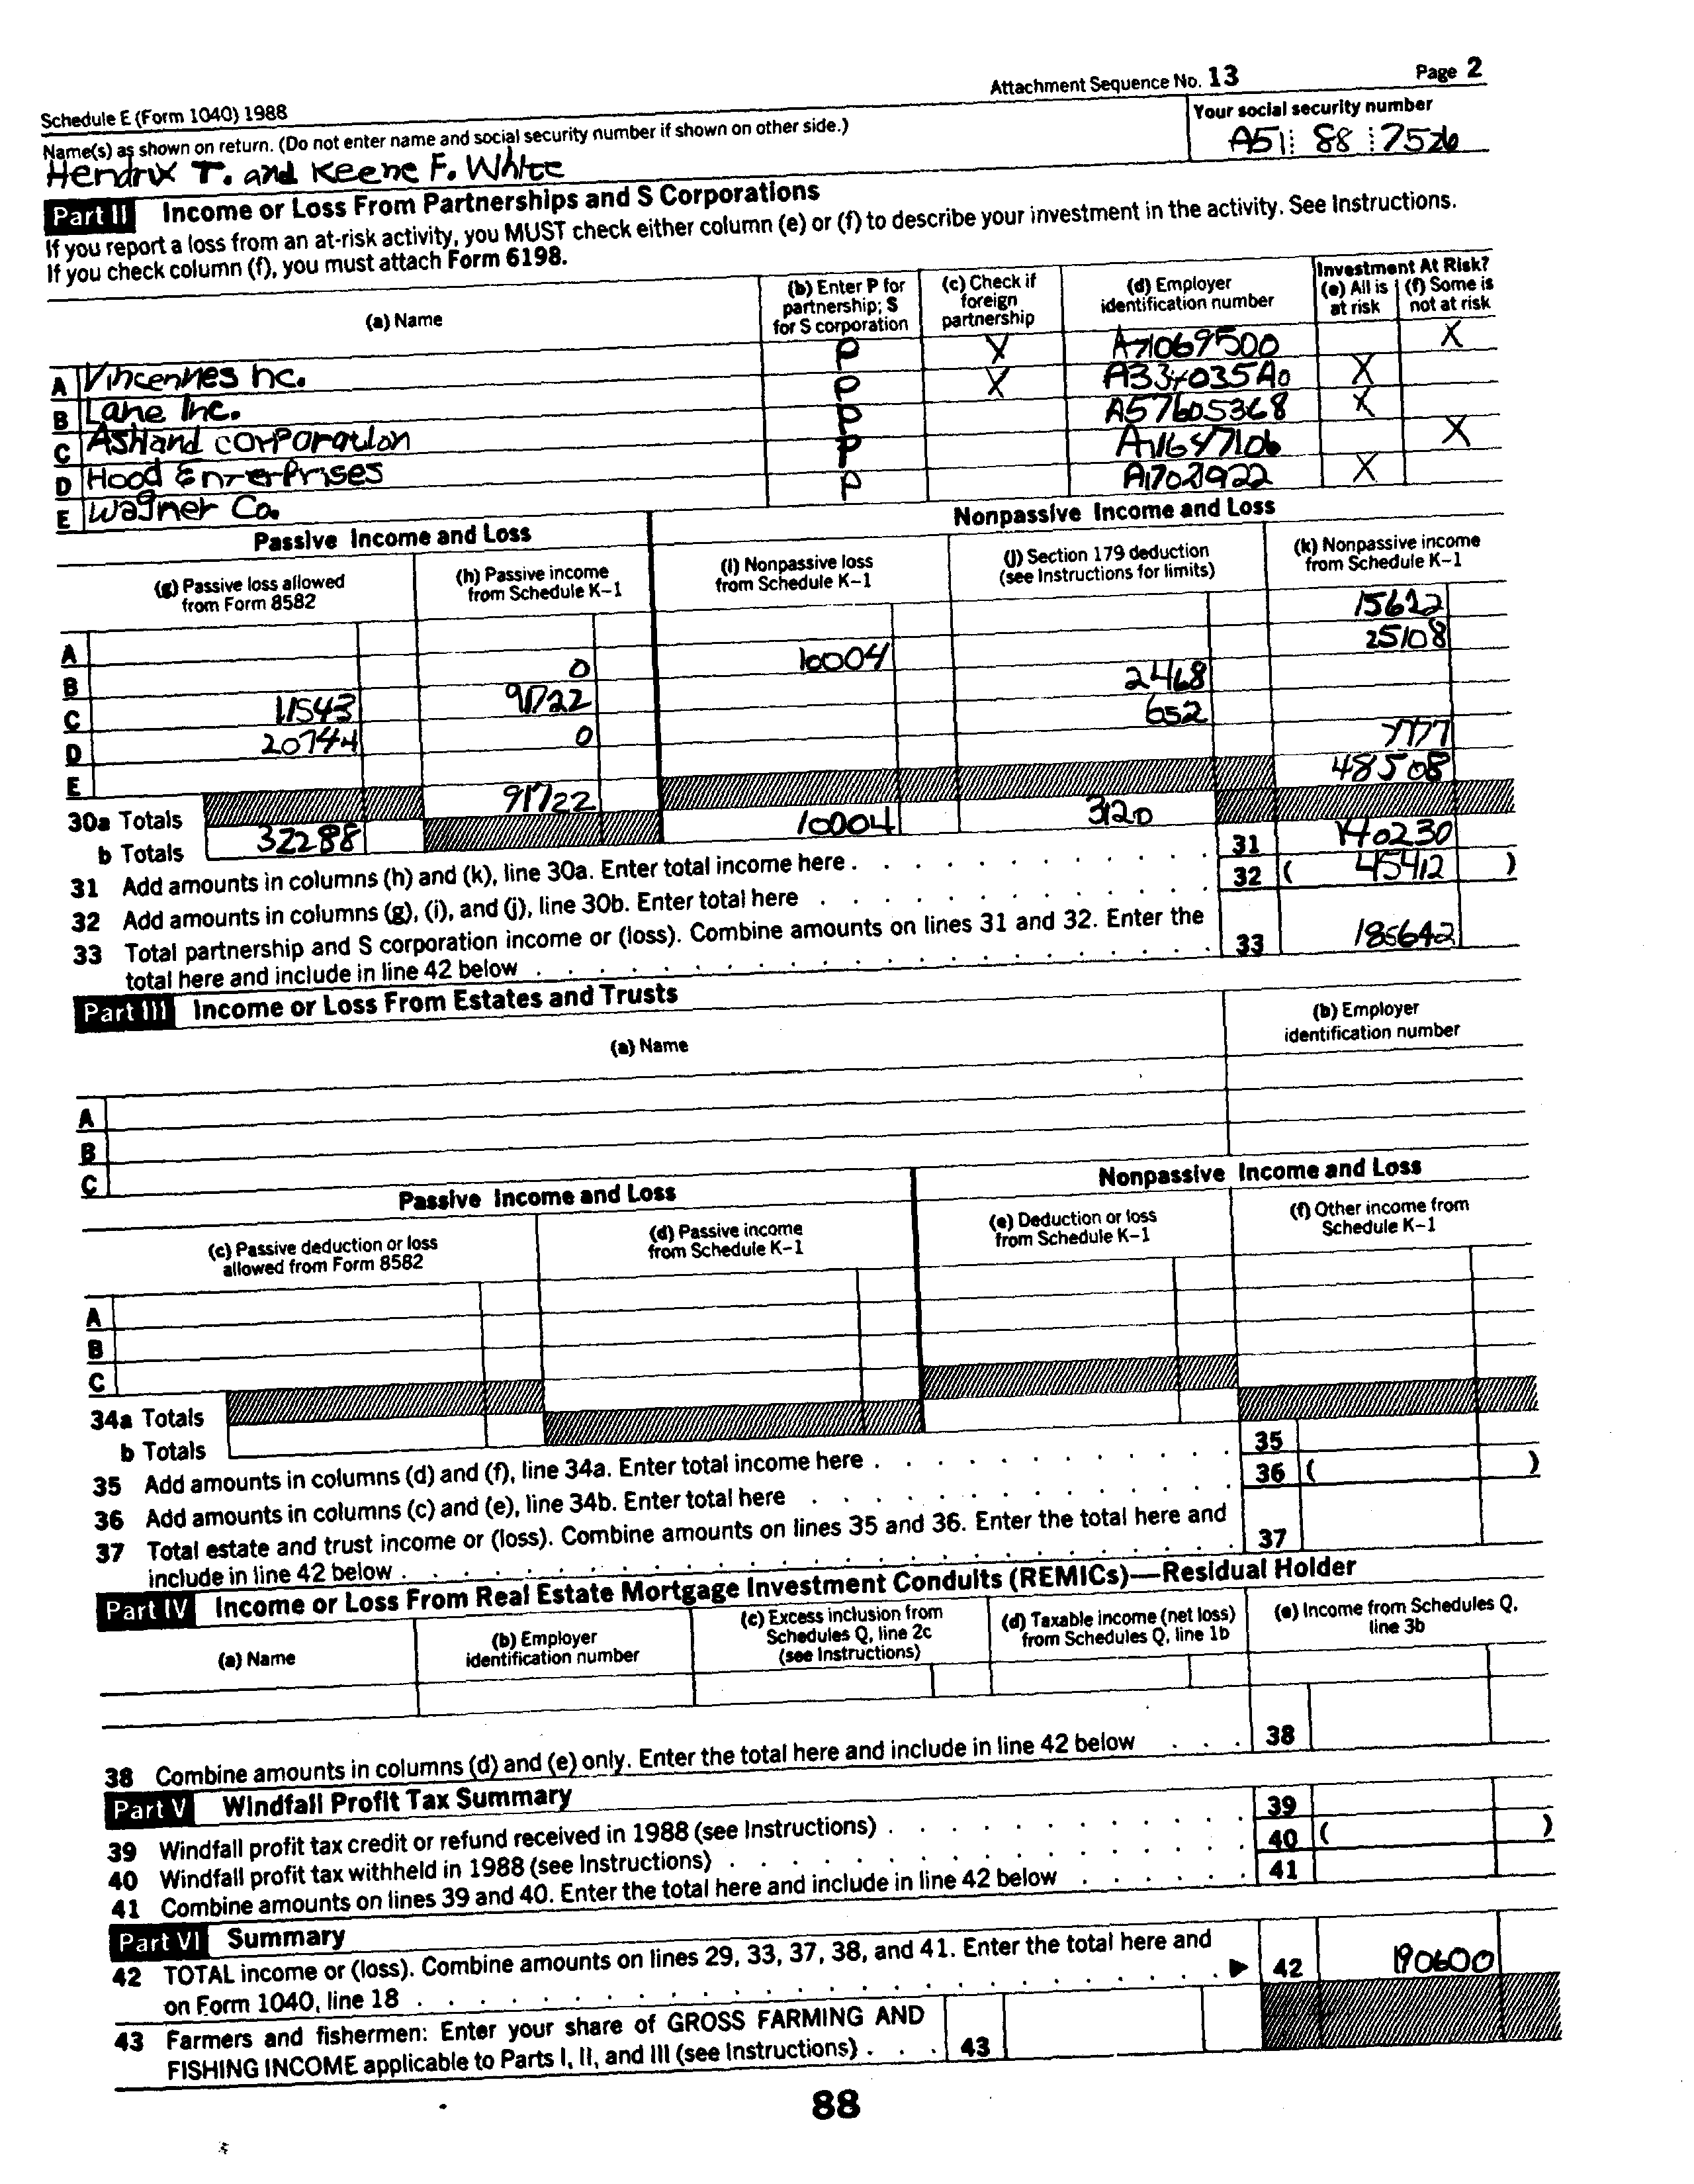 Attachment Sequence No. 13 Page 2
Schedule E (Form 1040) 1988
Name(s) as shown on return. (Do not enter name and social security number if shown on other side.) Your social security number
Hendrix T. and Keene F. White A51 88 7526
Part II Income or Loss From Partnerships and S Corporations
If you report a loss from an at-risk activity, you MUST check either column (e) or (f) to describe your investment in the activity. See Instructions.
If you check column (f), you must attach Form 6198.
(a) Name
(b) Enter P for
partnership; S
for S corporation
(c) Check if
foreign
partnership
(d) Employer
identification number
Investment At Risk?
(e) All is
at risk
(f) Some is
not at risk
A Vincennes nc. P X A71069500 X
B Lane Inc. P X X
C Ashland corporation P A57605368 X
D Hood Enterprises P X
E Wagner Co. P X
Passive Income and Loss
Nonpassive Income and Loss
(g) Passive loss allowed
from Form 8582
(h) Passive income
from Schedule K-1
(i) Nonpassive loss
from Schedule K-1
(j) Section 179 deduction
(see Instructions for limits)
(k) Nonpassive income
from Schedule K-1
A 15612
B 0 10004 25108
C 11543 91722 2468
D 20744 0 652
E 7777
30a Totals 91722 48508
b Totals 32288 10004 3120
31 Add amounts in columns (h) and (k), line 30a. Enter total income here 31 140230
32 Add amounts in columns (g), (i), and (j), line 30b. Enter total here 32 ( 45412 )
33 Total partnership and S corporation income or (loss). Combine amounts on lines 31 and 32. Enter the
total here and include in line 42 below 33 185642
Part III Income or Loss From Estates and Trusts
(a) Name
(b) Employer
identification number
A
B
C
Passive Income and Loss
Nonpassive Income and Loss
(c) Passive deduction or loss
allowed from Form 8582
(d) Passive income
from Schedule K-1
(e) Deduction or loss
from Schedule K-1
(f) Other income from
Schedule K-1
A
B
C
34a Totals
b Totals
35 Add amounts in columns (d) and (f), line 34a. Enter total income here 35
36 Add amounts in columns (c) and (e), line 34b. Enter total here 36 ( )
37 Total estate and trust income or (loss). Combine amounts on lines 35 and 36. Enter the total here and
include in line 42 below 37
Part IV Income or Loss From Real Estate Mortgage Investment Conduits (REMICs)—Residual Holder
(a) Name
(b) Employer
identification number
(c) Excess inclusion from
Schedules Q, line 2c
(see Instructions)
(d) Taxable income (net loss)
from Schedules Q, line 1b
(e) Income from Schedules Q,
line 3b
38 Combine amounts in columns (d) and (e) only. Enter the total here and include in line 42 below 38
Part V Windfall Profit Tax Summary
39 Windfall profit tax credit or refund received in 1988 (see Instructions) 39
40 Windfall profit tax withheld in 1988 (see Instructions) 40 ( )
41 Combine amounts on lines 39 and 40. Enter the total here and include in line 42 below 41
Part VI Summary
42 TOTAL income or (loss). Combine amounts on lines 29, 33, 37, 38, and 41. Enter the total here and
on Form 1040, line 18 ▶ 42 190600
43 Farmers and fishermen: Enter your share of GROSS FARMING AND
FISHING INCOME applicable to Parts I, II, and III (see Instructions) 43
88